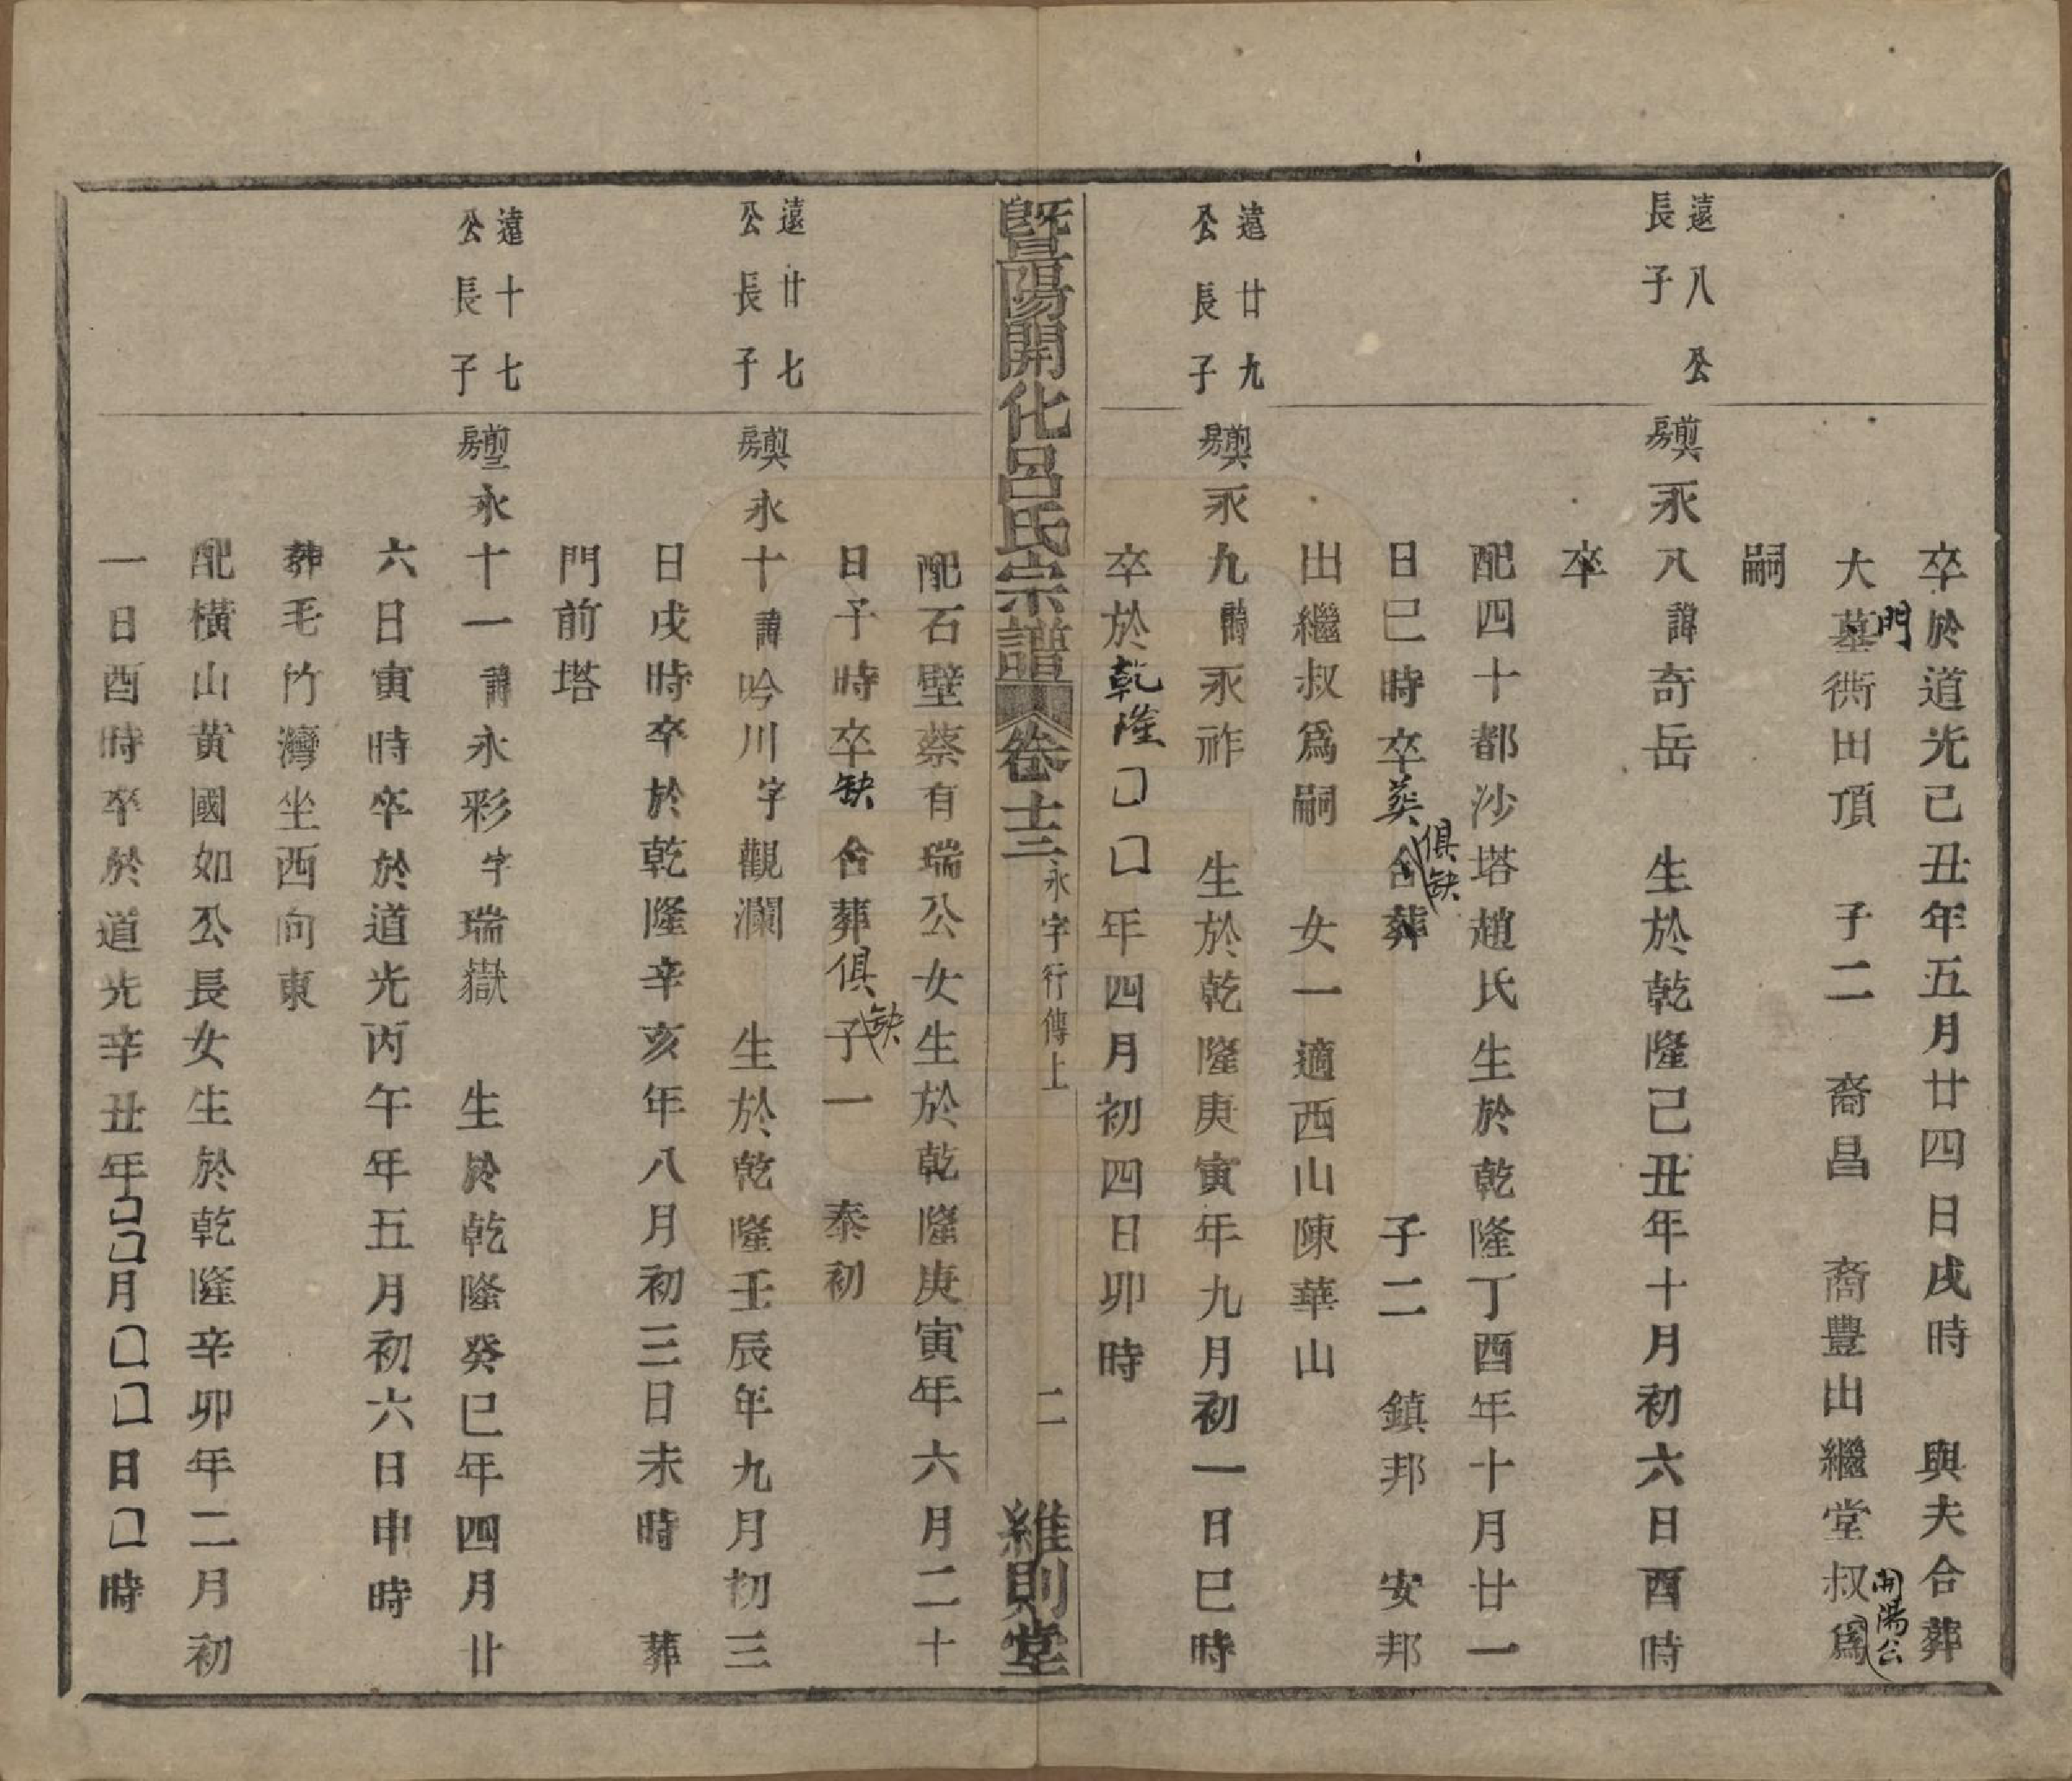 卒於道光己丑年五月廿四日戌時 與夫合葬
大門墓衖田頂 子二 裔昌 裔豐出繼堂叔開陽公爲
嗣
遠八公長子
巽房永八諱奇岳 生於乾隆己丑年十月初六日酉時
卒
配四十都沙塔趙氏生於乾隆丁酉年十月廿一
日巳時卒葬合葬俱缺 子二 鎮邦 安邦
出繼叔爲嗣 女一適西山陳華山
遠廿九公長子
巽房永九諱永祚 生於乾隆庚寅年九月初一日巳時
卒於乾隆囗囗年四月初四日卯時
暨陽開化呂氏宗譜 卷十三 永字行傳上 二 維則堂
配石壁蔡有瑞公女生於乾隆庚寅年六月二十
日子時卒缺合葬俱缺子一 泰初
遠廿七公長子
巽房永十諱吟川字觀瀾 生於乾隆壬辰年九月初三
日戌時卒於乾隆辛亥年八月初三日未時 葬
門前塔
遠十七公長子
房永十一諱永彩字瑞嶽 生於乾隆癸巳年四月廿
六日寅時卒於道光丙午年五月初六日申時
葬毛竹灣坐西向東
配橫山黃國如公長女生於乾隆辛卯年二月初
一日酉時卒於道光辛丑年囗囗月囗囗日囗時